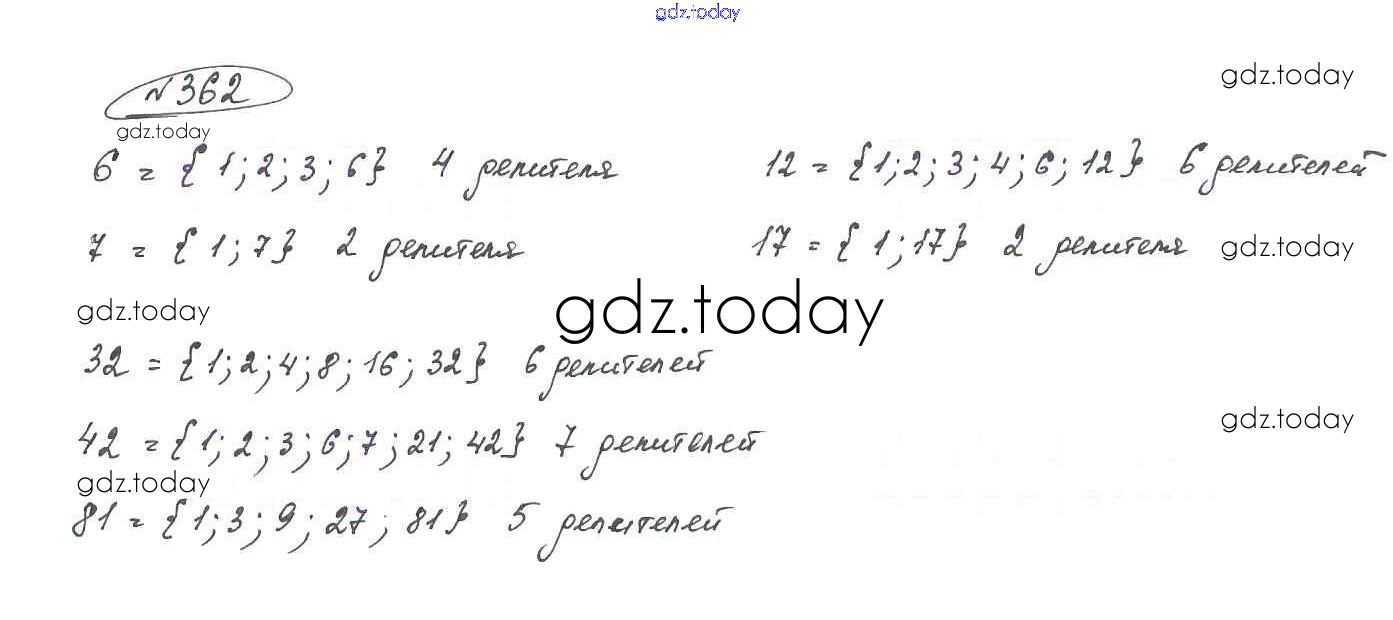 gdz.today
№362
gdz.today
gdz.today
6 = {1; 2; 3; 6} 4 делителя 12 = {1; 2; 3; 4; 6; 12} 6 делителей
7 = {1; 7} 2 делителя 17 = {1; 17} 2 делителя gdz.today
gdz.today gdz.today
32 = {1; 2; 4; 8; 16; 32} 6 делителей
gdz.today
42 = {1; 2; 3; 6; 7; 21; 42} 7 делителей
gdz.today
81 = {1; 3; 9; 27; 81} 5 делителей